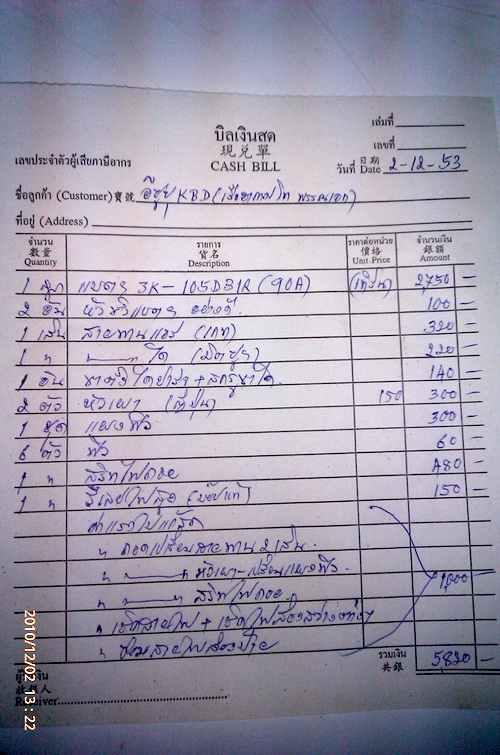 บิลเงินสด
現兌單
CASH BILL
เล่มที่
เลขที่
เลขประจำตัวผู้เสียภาษีอากร
วันที่ 日期 Date 2-12-53
ชื่อลูกค้า (Customer) 寶號 อีซูซุ KBD
ที่อยู่ (Address)
จำนวน 數量 Quantity รายการ 貨名 Description ราคาต่อหน่วย 價格 Unit-Price จำนวนเงิน 銀額 Amount
1 ลูก แบตฯ 3K-105D31R (90A) 2,750 -
2 อัน หัวขั้วแบตฯ อย่างดี 100 -
1 เส้น สายพานแอร์ 320 -
1 " ได 220 -
1 อัน 140 -
2 ตัว หัวเผา (ญี่ปุ่น) 150 300 -
1 ชุด แผงฟิว 300 -
6 ตัว ฟิว 60 -
1 " สวิทไฟถอย 480 -
1 " รีเลย์ไฟสูง 150 -
ค่าแรงใบแต่งตั้ง
" ถอดเปลี่ยนสายพาน 2 เส้น
" " หัวเผา-เปลี่ยนแผงฟิว
" " สวิทไฟถอย 1,000 -
" เช็คสายไฟ + เช็คไฟส่องสว่าง
" ซ่อมสายไฟส่องป้าย
รวมเงิน 共銀 5820 -
ผู้รับเงิน
收銀人
Receiver
2010/12/02 13:22